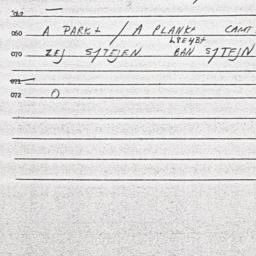 060 A PARK+ / A PLANK+ CAMT
070 ZEJ SJTEJEN BAN SJTEJN
071
072 O